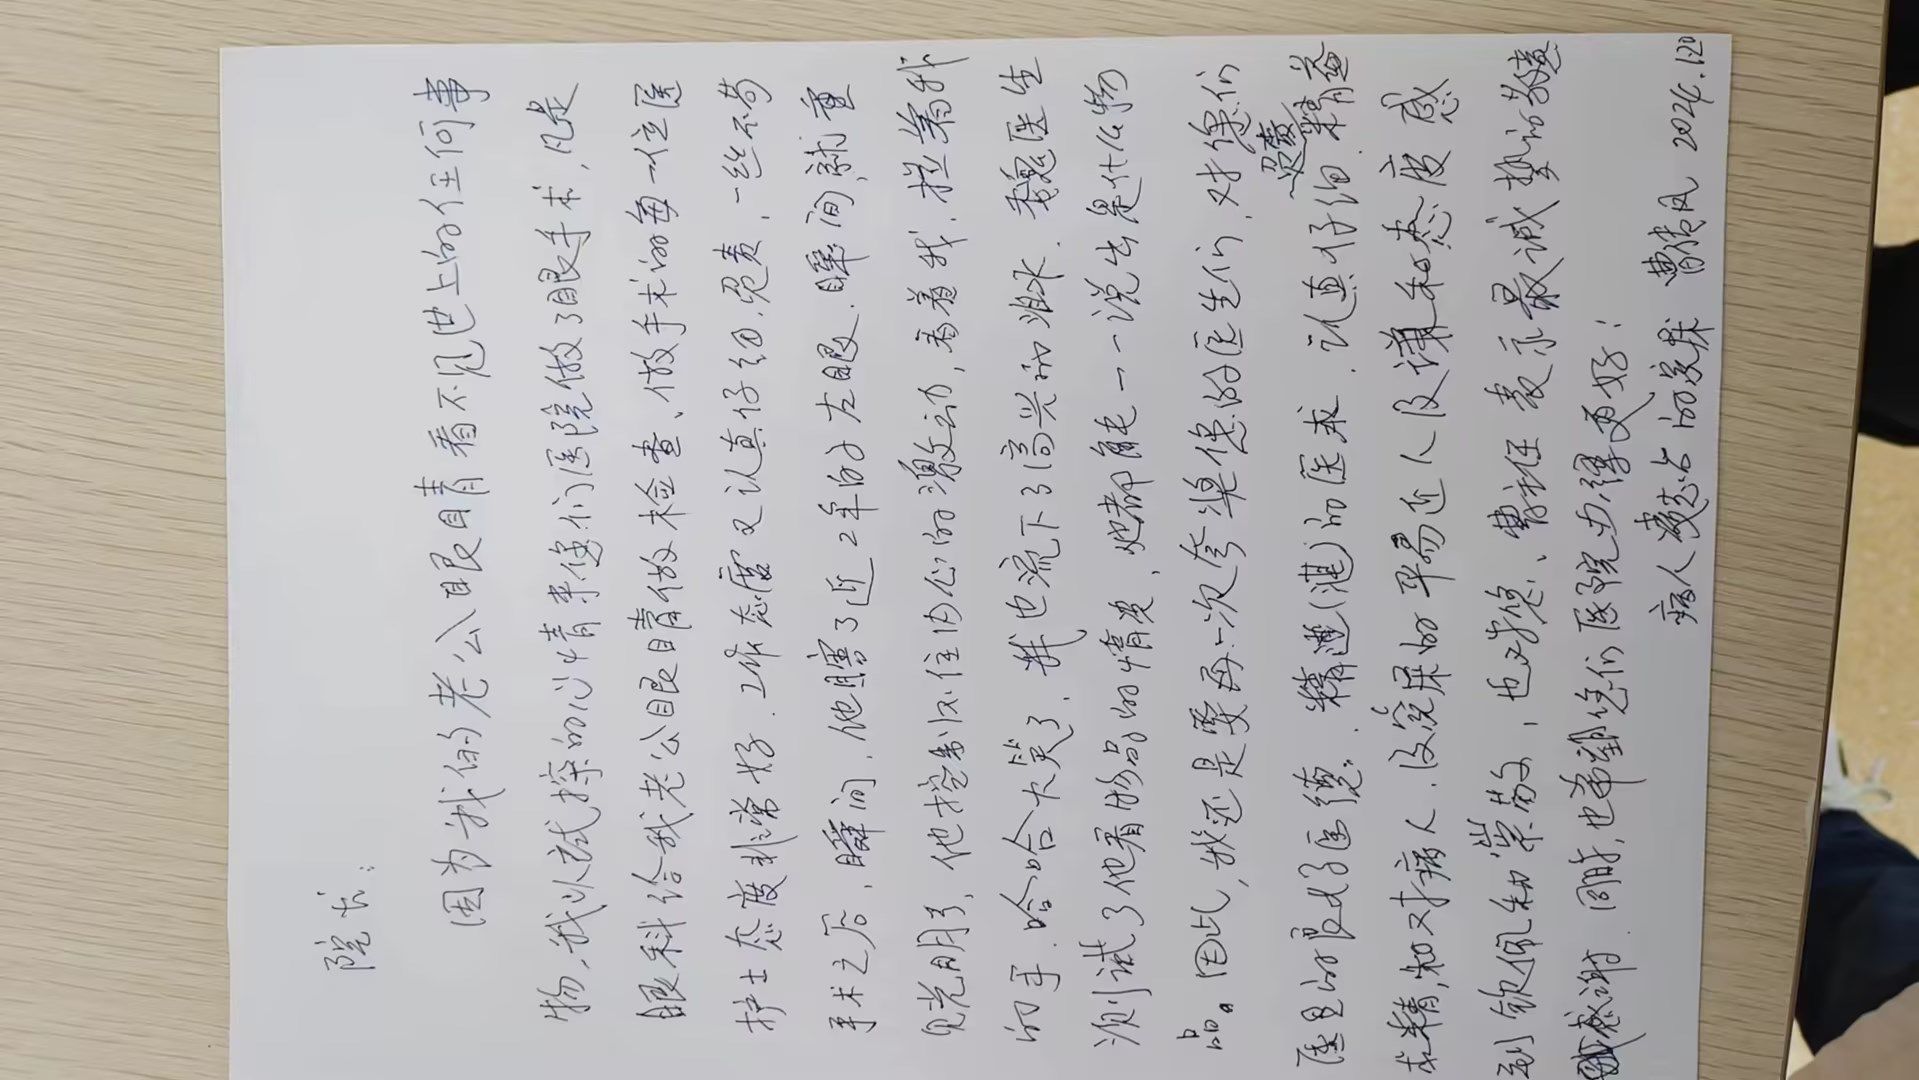 院长：
因为我的老公眼睛看不见世上的任何事
物，我以试探的心情来您们医院做了眼手术，凡是
眼科给我老公眼睛做检查、做手术的每一位医
护士态度非常好．工作态度又认真仔细，负责，一丝不苟
手术之后，瞬间，他瞎了近2年的左眼．瞬间，就重
见光明了，他控制不住内心的激动，看着我，拉着我
的手．哈哈大笑了．我也流下了高兴的泪水．魏医生
测试了他看物品的情况，他都能一一说出是什么物
品。因此，我还是要再一次夸奖您的医生们，对您们
医生的良好医德．精(湛)的医术．认真仔细．精益
求精，和对病人．及家属的平易近人及谦和态度感
到钦佩和崇敬，也对您、曹主任表示最诚挚的敬意
感谢．同时，也希望您们医院办得更好！
病人 的家属 曹 凤 2024.1.20